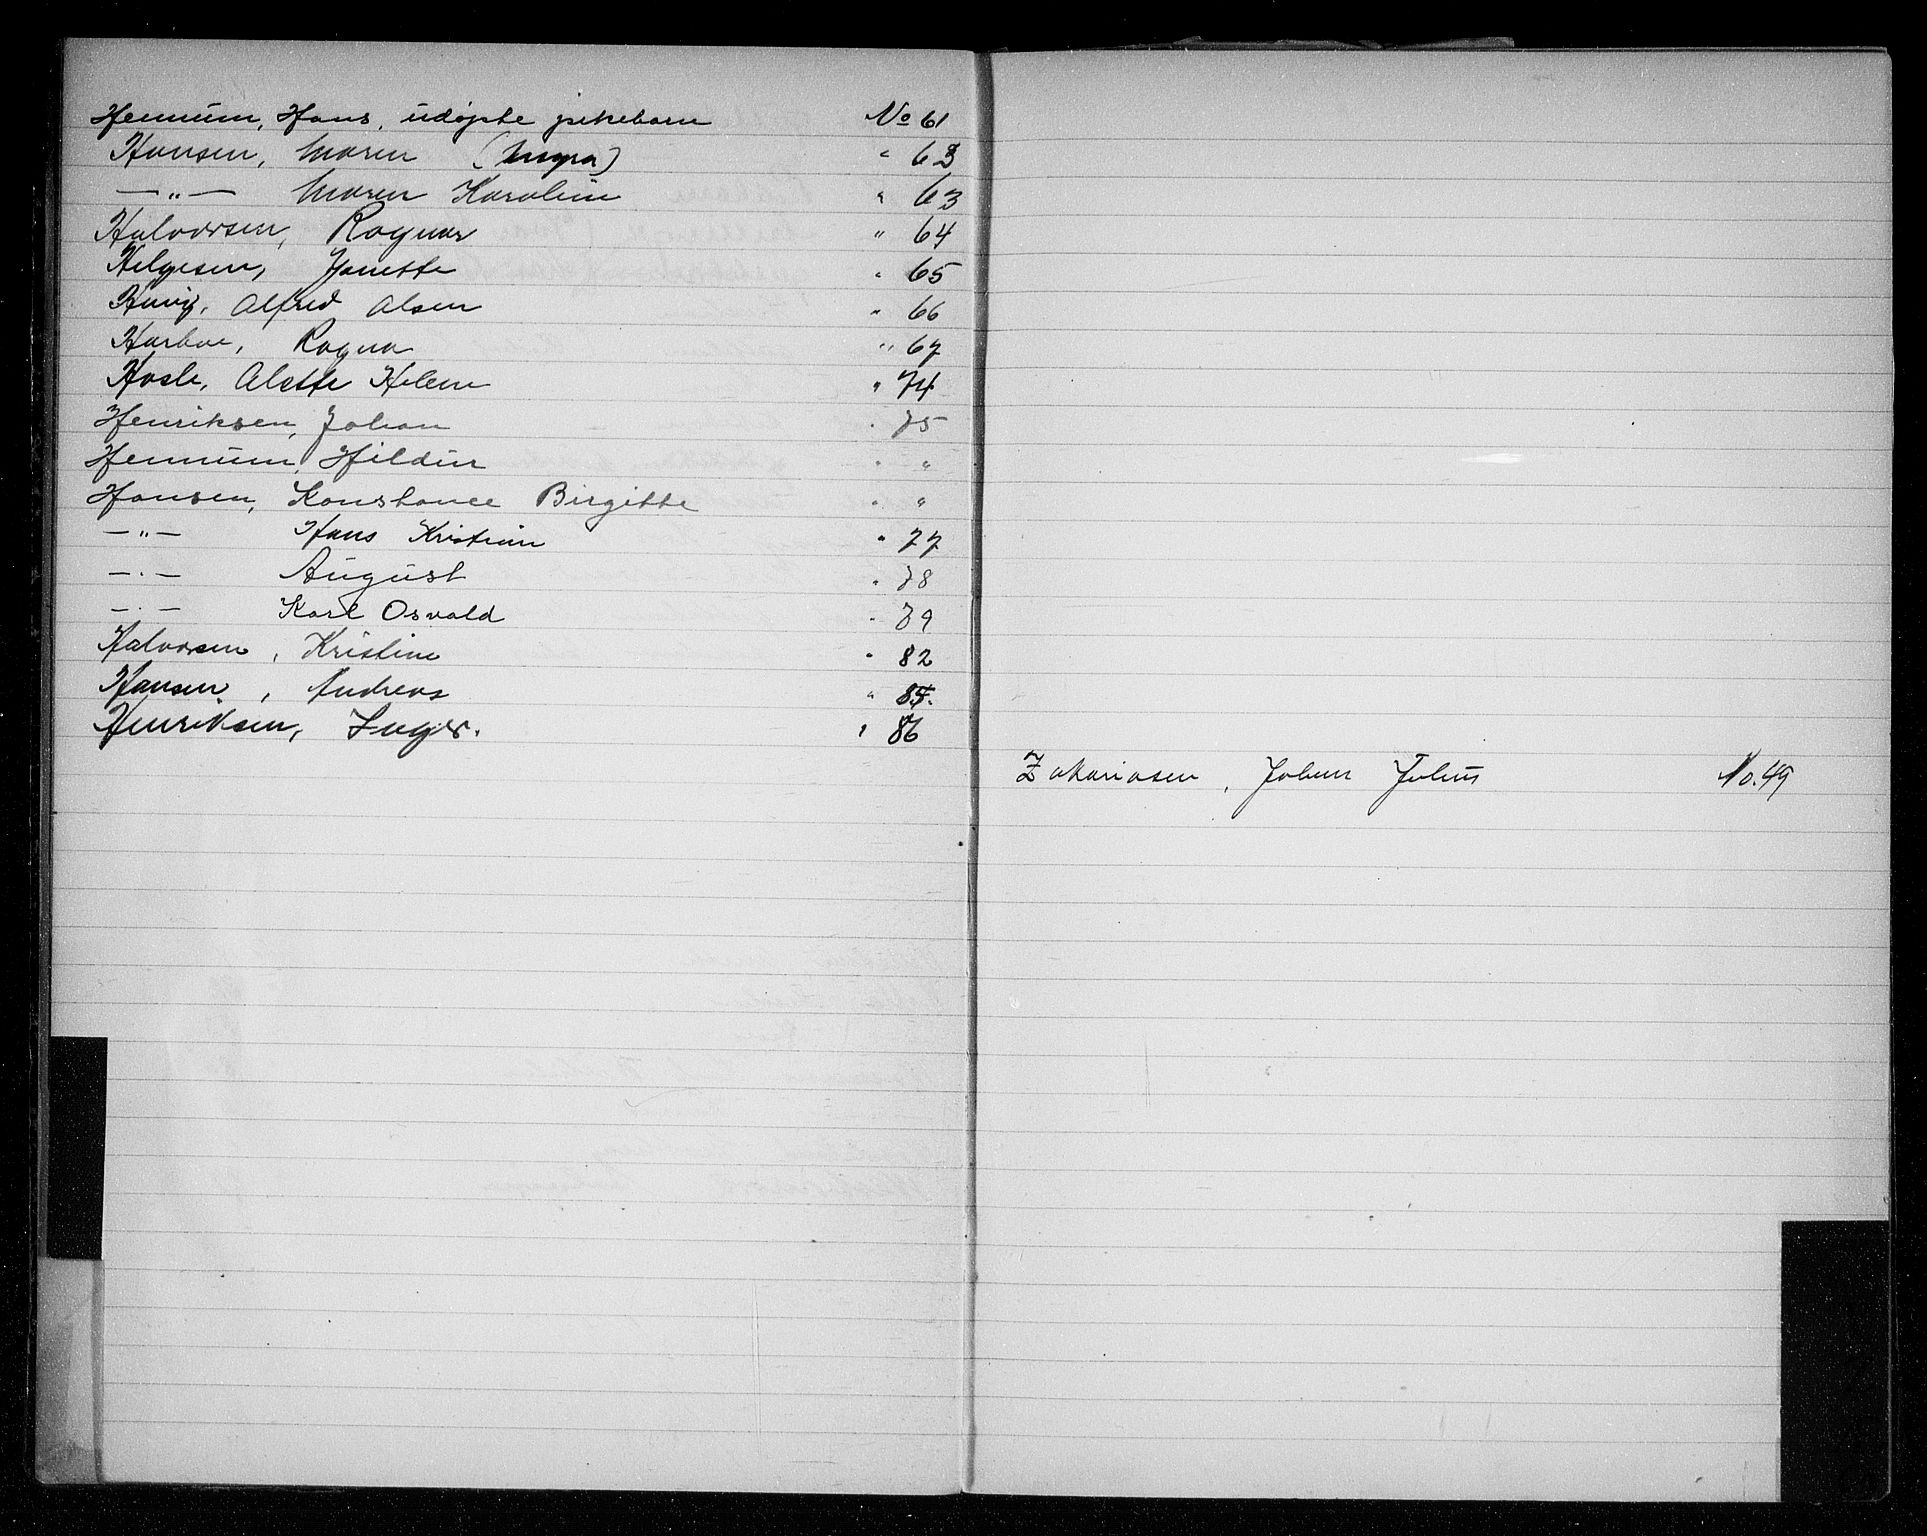 Hennum, Hans, udøpte pikebarn No 61
Hansen, Maren ( ) " 63
— " — Maren Karoline " 63
Halvorsen, Ragnar " 64
Helgesen, Janette " 65
Huvig, Alfred Olsen " 66
Harboe, Ragna " 67
Hasle, Alette Helene " 74
Henriksen, Johan " 75
Hennum, Hildur " "
Hansen, Konstance Birgitte " "
— " — Hans Kristian " 77
— " — August " 78
— " — Karl Osvald " 79
Halvorsen, Kristine " 82
Hansen, Andreas " 85.
Henriksen, Inger. " 86
Zakariasen, Johan Julius No. 49